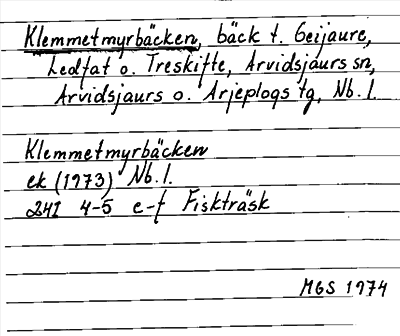 Klemmetmyrbäcken, bäck t. Geijaure,
Ledfat o. Treskifte, Arvidsjaurs sn,
Arvidsjaurs o. Arjeplogs tg, Nb. l.
Klemmetmyrbäcken
ek (1973) Nb. l.
24I 4-5 e-f Fiskträsk
MGS 1974